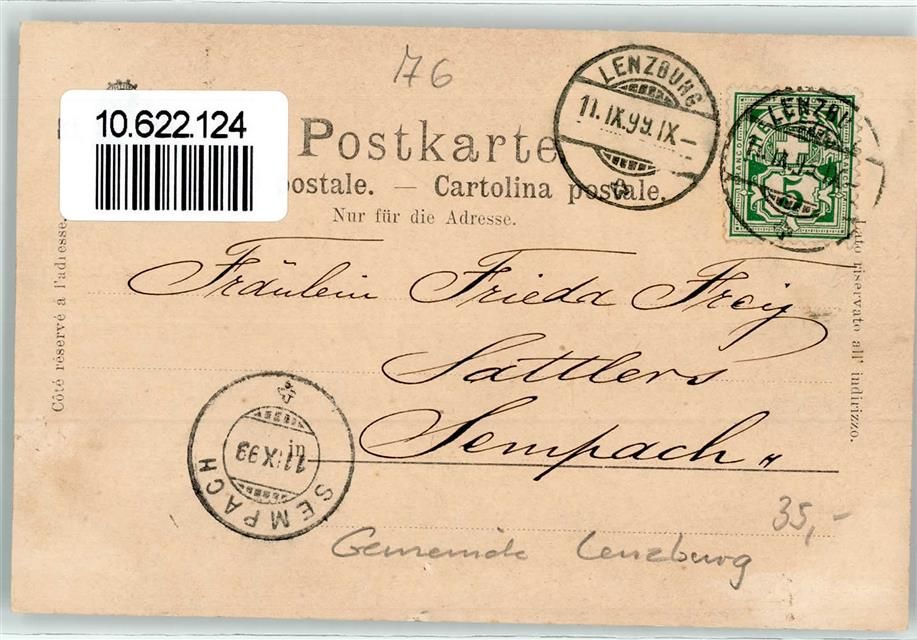 76
10.622.124
Postkarte
postale. — Cartolina postale.
Nur für die Adresse.
LENZBURG
11.IX.99.IX—
LENZBU
5
Côté réservé à l'adresse.
lato riservato all' indirizzo.
Fräulein Frieda Frey
Sattlers
Sempach
SEMPACH
11.IX.99
35,-
Gemeinde Lenzburg